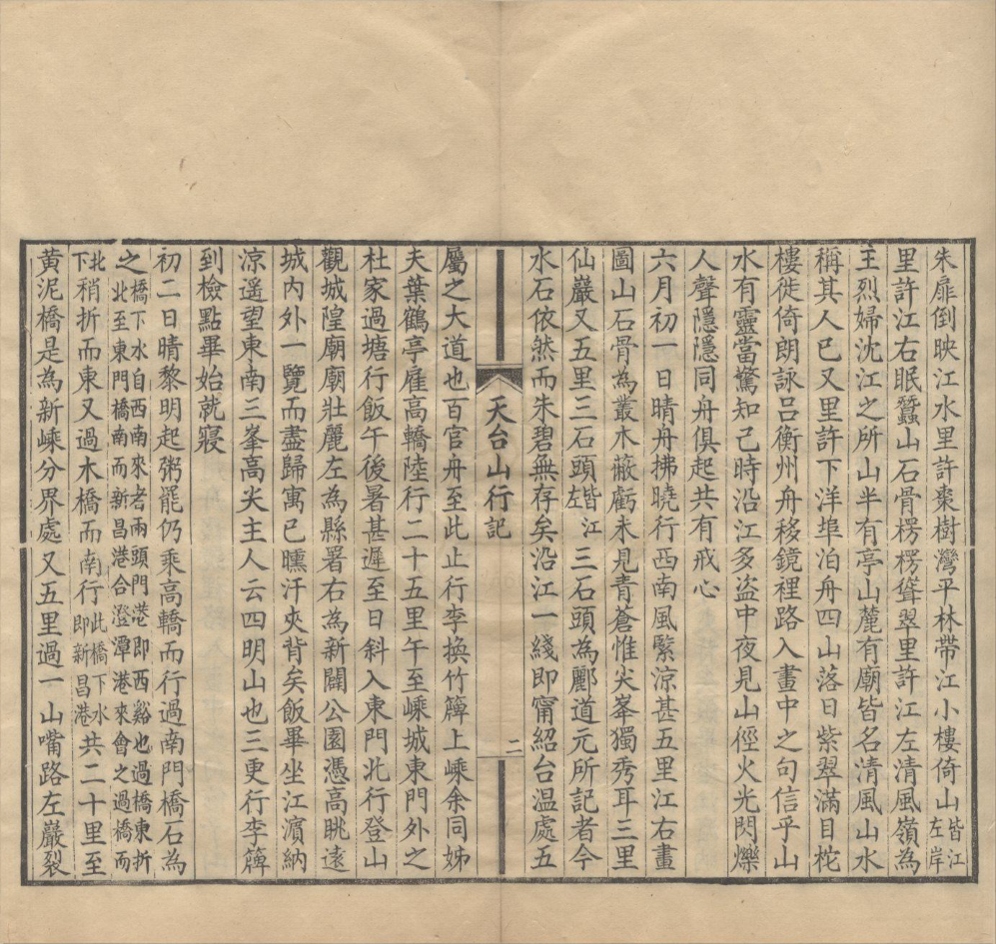 朱扉倒映江水里許棗樹灣平林帶江小樓倚山皆江左岸
里許江右眠蠶山石骨楞楞聳翠里許江左清風嶺為
王烈婦沈江之所山半有亭山麓有廟皆名清風山水
稱其人已又里許下洋埠泊舟四山落日紫翠滿目柁
樓徙倚朗詠呂衡州舟移鏡裡路入畫中之句信乎山
水有靈當驚知己時沿江多盜中夜見山徑火光閃爍
人聲隱隱同舟俱起共有戒心
六月初一日晴舟拂曉行西南風緊涼甚五里江右畫
圖山石骨為叢木蔽虧未見青蒼惟尖峯獨秀耳三里
仙巖又五里三石頭皆江左三石頭為酈道元所記者今
水石依然而朱碧無存矣沿江一綫即甯紹台温處五
天台山行記
二
屬之大道也百官舟至此止行李換竹簰上嵊余同姊
夫葉鶴亭雇高轎陸行二十五里午至嵊城東門外之
杜家過塘行飯午後暑甚遲至日斜入東門北行登山
觀城隍廟廟壯麗左為縣署右為新闢公園憑高眺遠
城內外一覽而盡歸寓已曛汗夾背矣飯畢坐江濱納
涼遥望東南三峯高尖主人云四明山也三更行李簰
到檢點畢始就寢
初二日晴黎明起粥罷仍乘高轎而行過南門橋石為
之橋下水自西南來者兩頭門港即西谿也過橋東折北至東門橋南而新昌港合澄潭港來會之過橋而
北下稍折而東又過木橋而南行此橋下水即新昌港共二十里至
黃泥橋是為新嵊分界處又五里過一山嘴路左巖裂